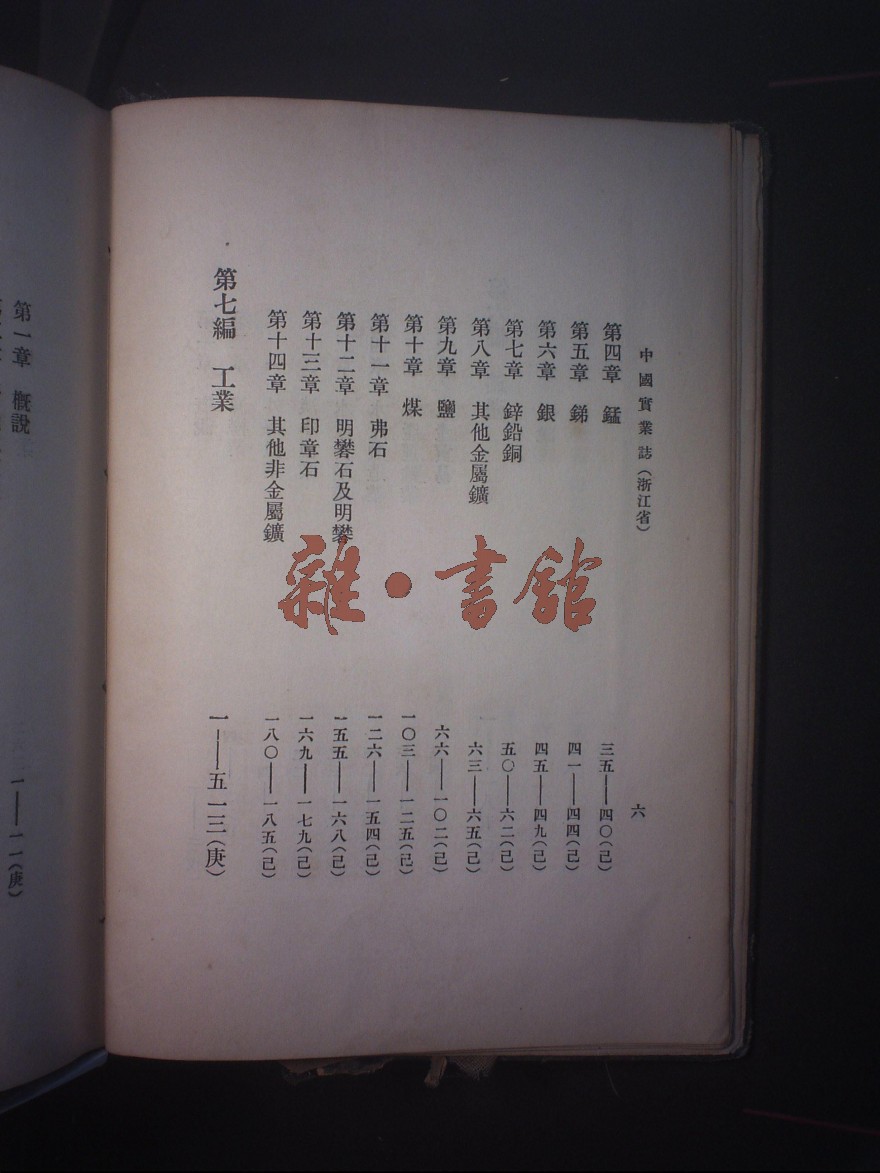 中國實業誌（浙江省）
六
第四章　錳　三五——四〇（己）
第五章　銻　四一——四四（己）
第六章　銀　四五——四九（己）
第七章　鋅鉛銅　五〇——六二（己）
第八章　其他金屬鑛　六三——六五（己）
第九章　鹽　六六——一〇二（己）
第十章　煤　一〇三——一二五（己）
第十一章　弗石　一二六——一五四（己）
第十二章　明礬石及明礬　一五五——一六八（己）
第十三章　印章石　一六九——一七九（己）
第十四章　其他非金屬鑛　一八〇——一八五（己）
第七編　工業　一——五一三（庚）
第一章　概說　一——一一（庚）
雜·書館